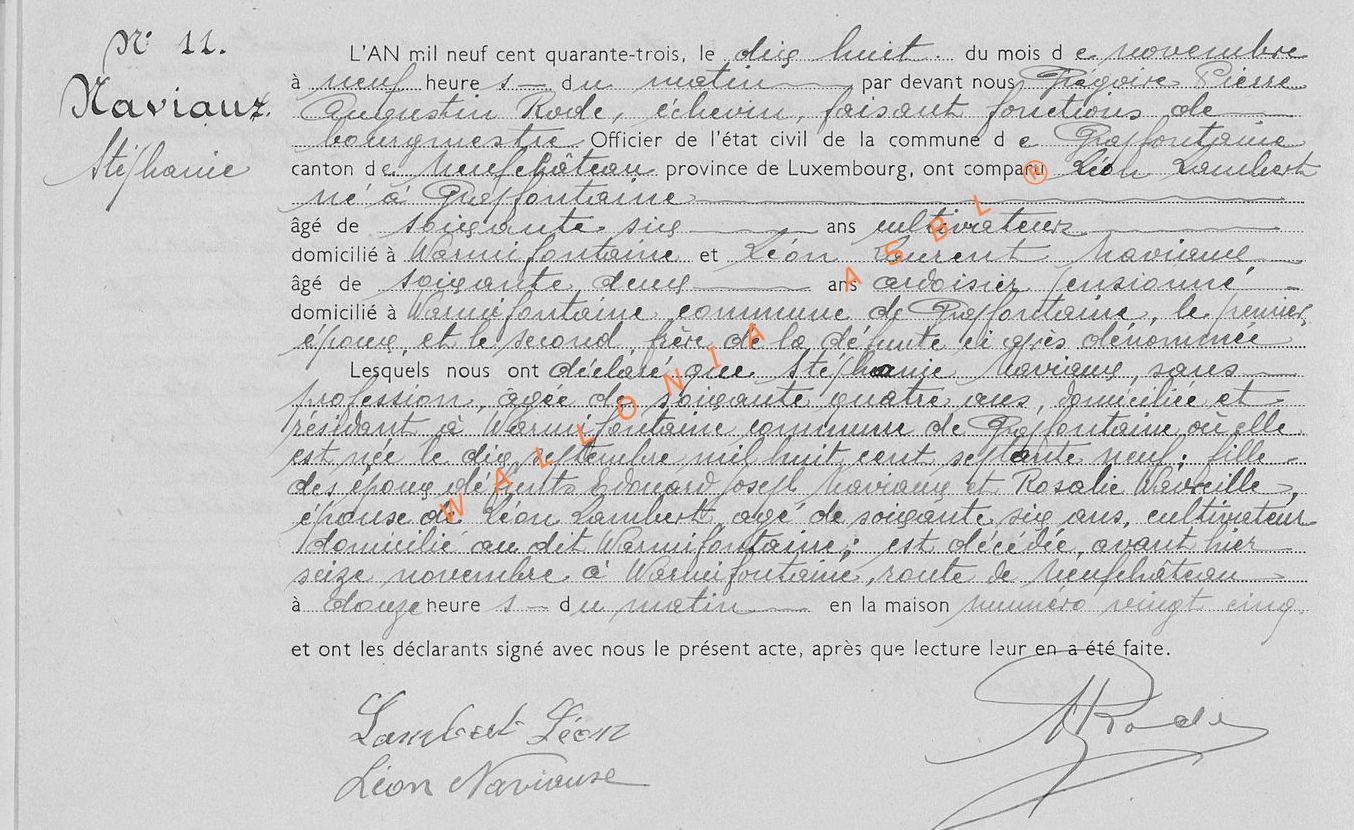 N° 11.
Naviaux.
Stéphanie
L'AN mil neuf cent quarante-trois, le dix huit du mois de novembre
à neuf heures du matin par devant nous Grégoire Pierre
Augustin Rode, échevin, faisant fonctions de
bourgmestre Officier de l'état civil de la commune de Grapfontaine
canton de Neufchâteau province de Luxembourg, ont comparu Léon Lambert
né à Grapfontaine
âgé de soixante six ans cultivateur
domicilié à Warmifontaine et Léon Laurent Naviaux
âgé de soixante deux ans ardoisier pensionné
domicilié à Warmifontaine commune de Grapfontaine, le premier,
époux, et le second frère de la défunte ci après dénommée
Lesquels nous ont déclaré que Stéphanie Naviaux, sans
profession, âgée de soixante quatre ans, domiciliée et
résidant à Warmifontaine commune de Grapfontaine où elle
est née le dix septembre mil huit cent septante neuf; fille
des époux défunts Edouard Joseph Naviaux et Rosalie Wavreille,
épouse de Léon Lambert, agé de soixante six ans, cultivateur
domicilié au dit Warmifontaine; est décédée, avant hier
seize novembre à Warmifontaine, route de Neufchâteau
à douze heures du matin en la maison numéro vingt cinq
et ont les déclarants signé avec nous le présent acte, après que lecture leur en a été faite.
Lambert Léon
Léon Naviaux
A Rode
WALLONIA ASBL ®